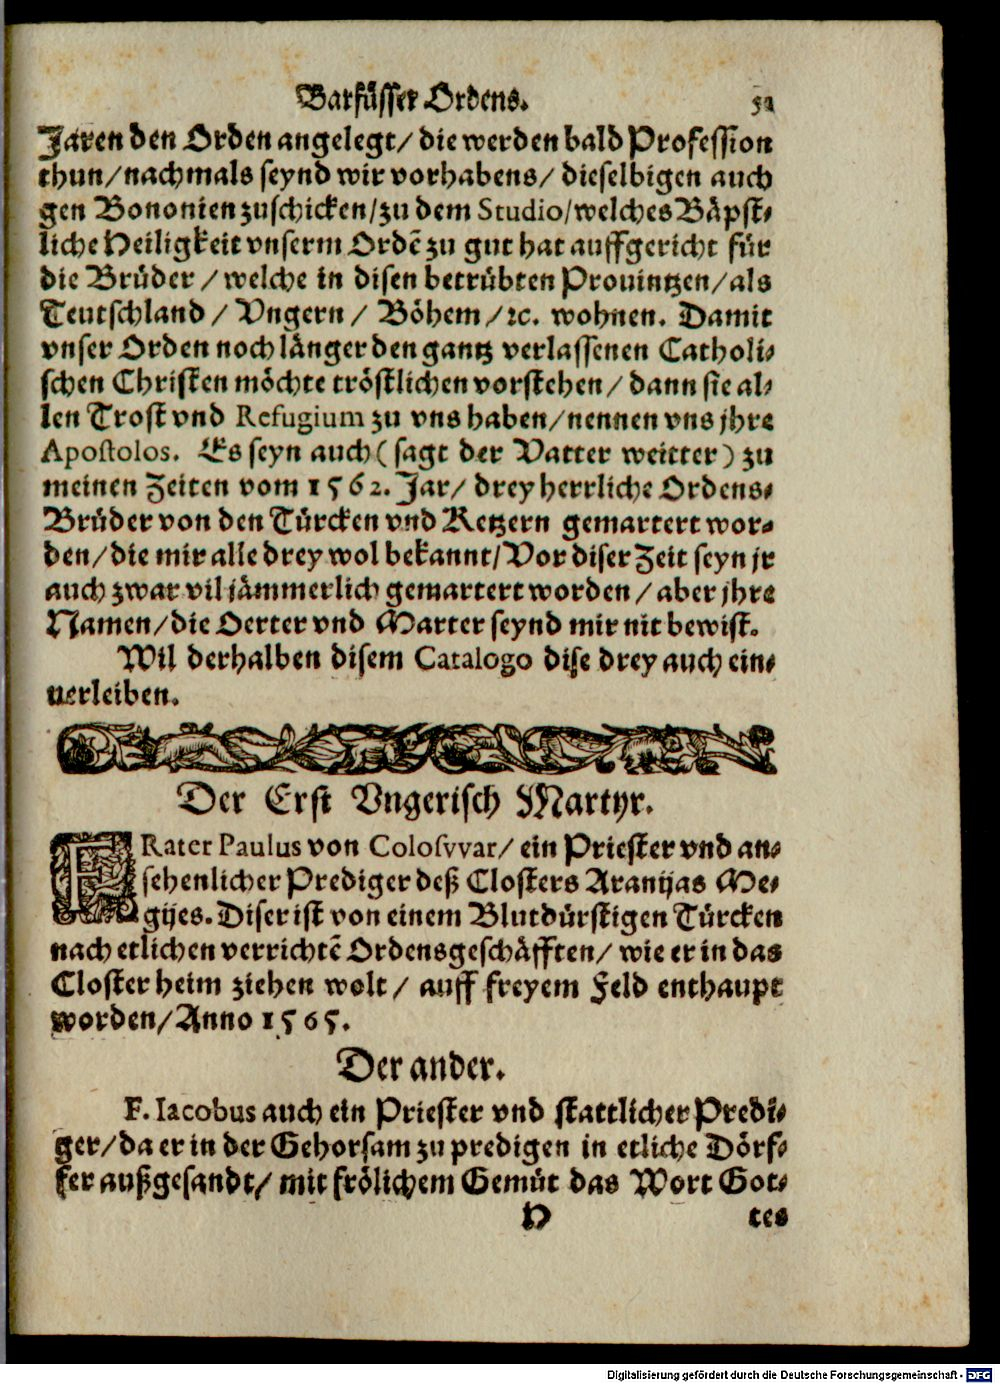 Barfüsser Ordens. 52
Jaren den Orden angelegt/ die werden bald Profession
thun/nachmals seynd wir vorhabens/ dieselbigen auch
gen Bononien zuschicken/zu dem Studio/welches Bäpst-
liche Heiligkeit vnserm Ordẽ zu gut hat auffgericht für
die Brüder/welche in disen betrübten Prouintzen/als
Teutschland/ Vngern/ Böhem/ꝛc. wohnen. Damit
vnser Orden noch länger den gantz verlassenen Catholi-
schen Christen möchte tröstlichen vorstehen/ dann sie al-
len Trost vnd Refugium zu vns haben/nennen vns jhre
Apostolos. Es seyn auch (sagt der Vatter weitter) zu
meinen Zeiten vom 1562. Jar/ drey herrliche Ordens-
Brüder von den Türcken vnd Ketzern gemartert wor-
den/die mir alle drey wol bekannt/Vor diser Zeit seyn jr
auch zwar vil jämmerlich gemartert worden/ aber jhre
Namen/die Oerter vnd Marter seynd mir nit bewist.
Wil derhalben disem Catalogo dise drey auch ein-
uerleiben.
Der Erst Vngerisch Martyr.
FRater Paulus von Colosvvar/ ein Priester vnd an-
sehenlicher Prediger deß Closters Aranyas Me-
gyes. Diser ist von einem Blutdürstigen Türcken
nach etlichen verrichtẽ Ordensgeschäfften/ wie er in das
Closter heim ziehen wolt/ auff freyem Feld enthaupt
worden/Anno 1565.
Der ander.
F. Iacobus auch ein Priester vnd stattlicher Predi-
ger/da er in der Gehorsam zu predigen in etliche Dörf-
fer außgesandt/ mit frölichem Gemüt das Wort Got-
H tes
Digitalisierung gefördert durch die Deutsche Forschungsgemeinschaft - DFG